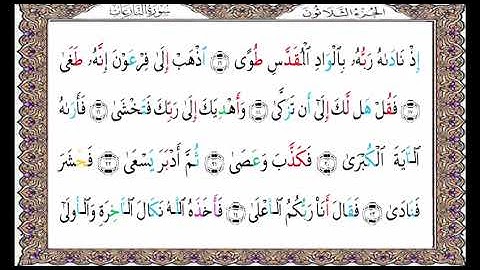 الجزء الثلاثون سورة النازعات
إِذْ نَادَىٰهُ رَبُّهُۥ بِٱلْوَادِ ٱلْمُقَدَّسِ طُوًى ١٦ ٱذْهَبْ إِلَىٰ فِرْعَوْنَ إِنَّهُۥ طَغَىٰ
١٧ فَقُلْ هَل لَّكَ إِلَىٰٓ أَن تَزَكَّىٰ ١٨ وَأَهْدِيَكَ إِلَىٰ رَبِّكَ فَتَخْشَىٰ ١٩ فَأَرَىٰهُ
ٱلْـَٔايَةَ ٱلْكُبْرَىٰ ٢٠ فَكَذَّبَ وَعَصَىٰ ٢١ ثُمَّ أَدْبَرَ يَسْعَىٰ ٢٢ فَحَشَرَ
فَنَادَىٰ ٢٣ فَقَالَ أَنَا۠ رَبُّكُمُ ٱلْأَعْلَىٰ ٢٤ فَأَخَذَهُ ٱللَّهُ نَكَالَ ٱلْـَٔاخِرَةِ وَٱلْأُولَىٰٓ